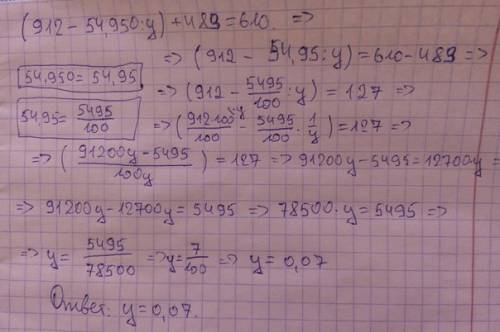 (912 - 54,950:y) + 483 = 610. =>
=> (912 - 54,95:y) = 610 - 483 =>
54,950 = 54,95 => (912 - 5495/100 : y) = 127 =>
54,95 = 5495/100 => (912·100^{·y}/100 - 5495/100 · 1/y) = 127 =>
=> (91200y - 5495 / 100y) = 127 => 91200y - 5495 = 12700y =
=> 91200y - 12700y = 5495 => 78500·y = 5495 =>
=> y = 5495/78500 => y = 7/100 => y = 0,07
Ответ: y = 0,07.